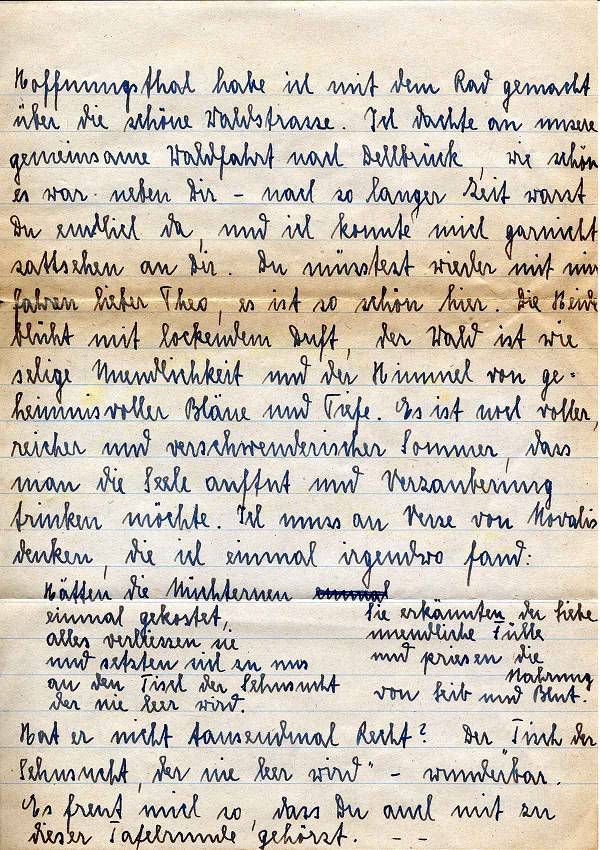 Hoffnungsthal habe ich mit dem Rad gemacht
über die schöne Waldstrasse. Ich dachte an unsere
gemeinsame Waldfahrt nach Dellbrück, wie schön
es war neben Dir – nach so langer Zeit warst
Du endlich da, und ich konnte mich garnicht
sattsehen an Dir. Du müsstest wieder mit mir
fahren lieber Theo, es ist so schön hier. Die Heide
blüht mit lockendem Duft, der Wald ist wie
selige Unendlichkeit und der Himmel von ge=
heimnisvoller Bläue und Tiefe. Es ist noch voller,
reicher und verschwenderischer Sommer, dass
man die Seele auftut und Verzauberung
trinken möchte. Ich muss an Verse von Novalis
denken, die ich einmal irgendwo fand:
Hätten die Nüchternen einmal
einmal gekostet,
alles verliessen sie
und setzten sich zu uns
an den Tisch der Sehnsucht
der nie leer wird.
Sie erkännten der Liebe
unendliche Fülle
und priesen die
Nahrung
von Leib und Blut.
Hat er nicht tausendmal Recht? Der "Tisch der
Sehnsucht, der nie leer wird" – wunderbar.
Es freut mich so, dass Du auch mit zu
dieser Tafelrunde gehörst. – –